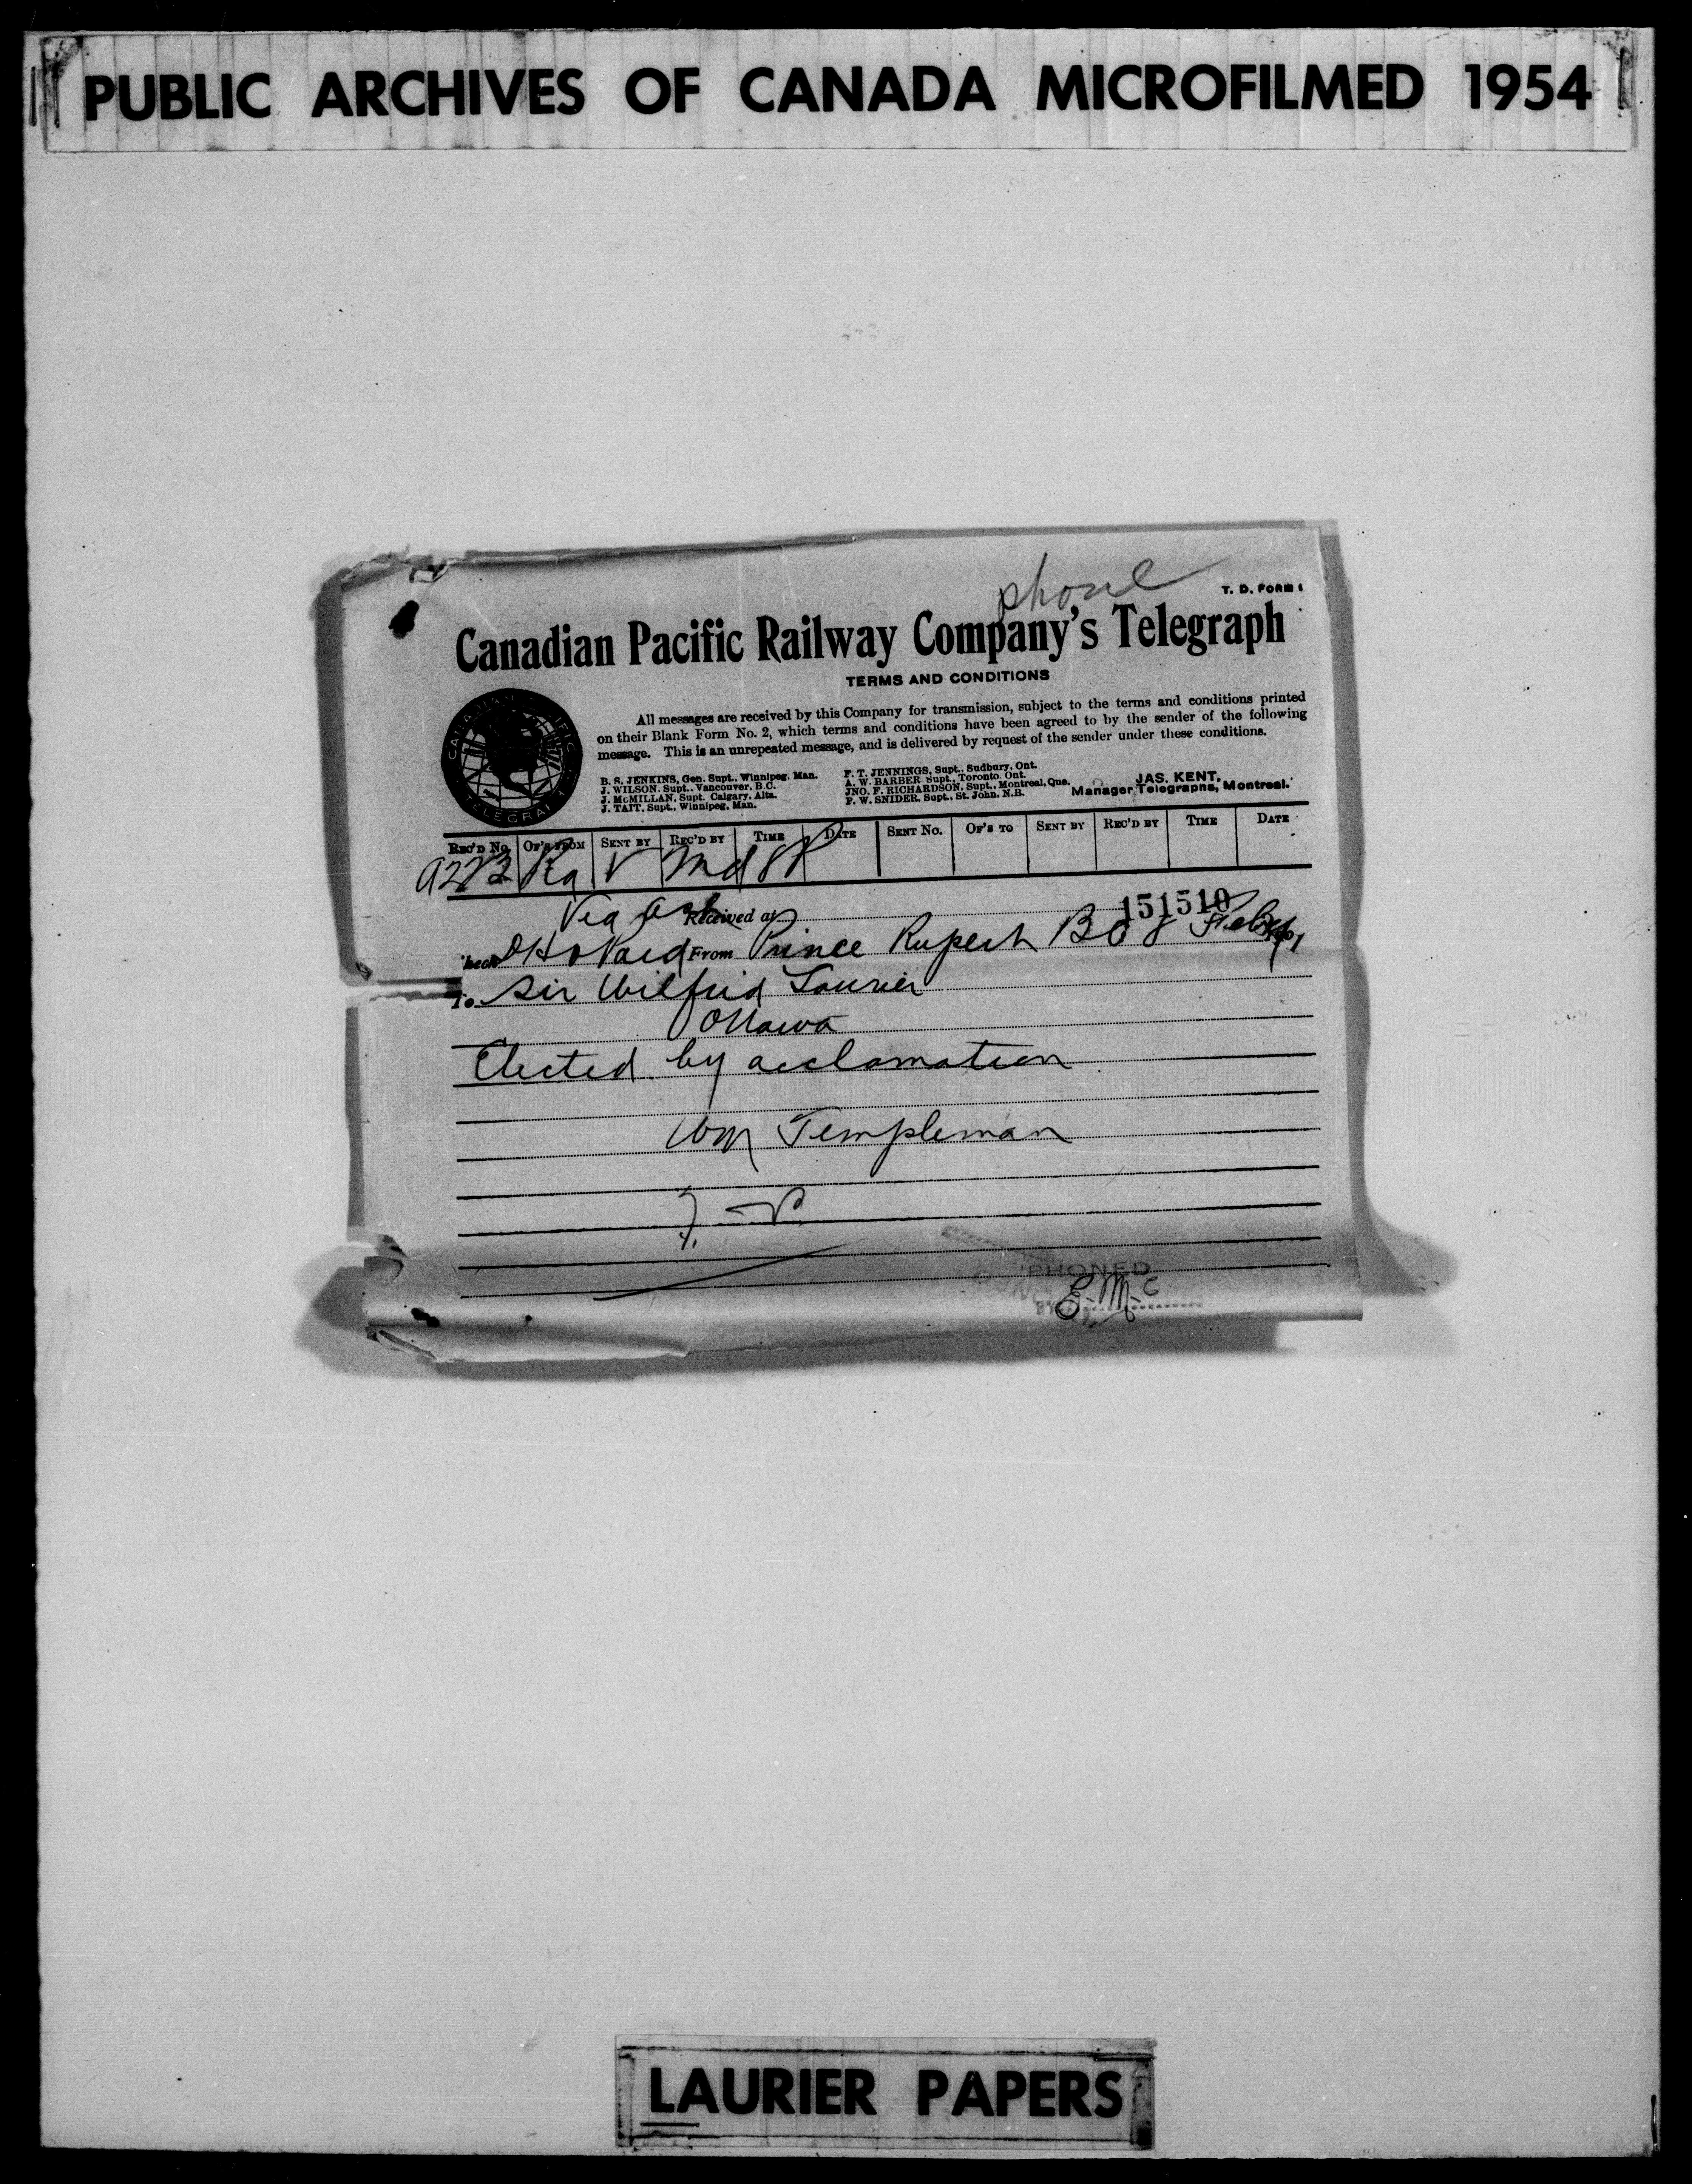 PUBLIC ARCHIVES OF CANADA MICROFILMED 1954
phone
T. D. FORM 1
Canadian Pacific Railway Company's Telegraph
TERMS AND CONDITIONS
All messages are received by this Company for transmission, subject to the terms and conditions printed
on their Blank Form No. 2, which terms and conditions have been agreed to by the sender of the following
message. This is an unrepeated message, and is delivered by request of the sender under these conditions.
B. S. JENKINS, Gen. Supt., Winnipeg, Man.
J. WILSON, Supt., Vancouver, B.C.
J. McMILLAN, Supt. Calgary, Alta.
J. TAIT, Supt., Winnipeg, Man.
F. T. JENNINGS, Supt., Sudbury, Ont.
A. W. BARBER Supt., Toronto, Ont.
JNO. F. RICHARDSON, Supt., Montreal, Que.
P. W. SNIDER, Supt., St. John, N.B.
JAS. KENT,
Manager Telegraphs, Montreal.
CANADIAN PACIFIC TELEGRAPH
REC'D No. OF'S FROM SENT BY REC'D BY TIME DATE SENT No. OF'S TO SENT BY REC'D BY TIME DATE
Via
Received at
151510
Paid From Prince Rupert BC 8
To Sir Wilfrid Laurier
Ottawa
Elected by acclamation
Wm Templeman
'PHONED
LAURIER PAPERS